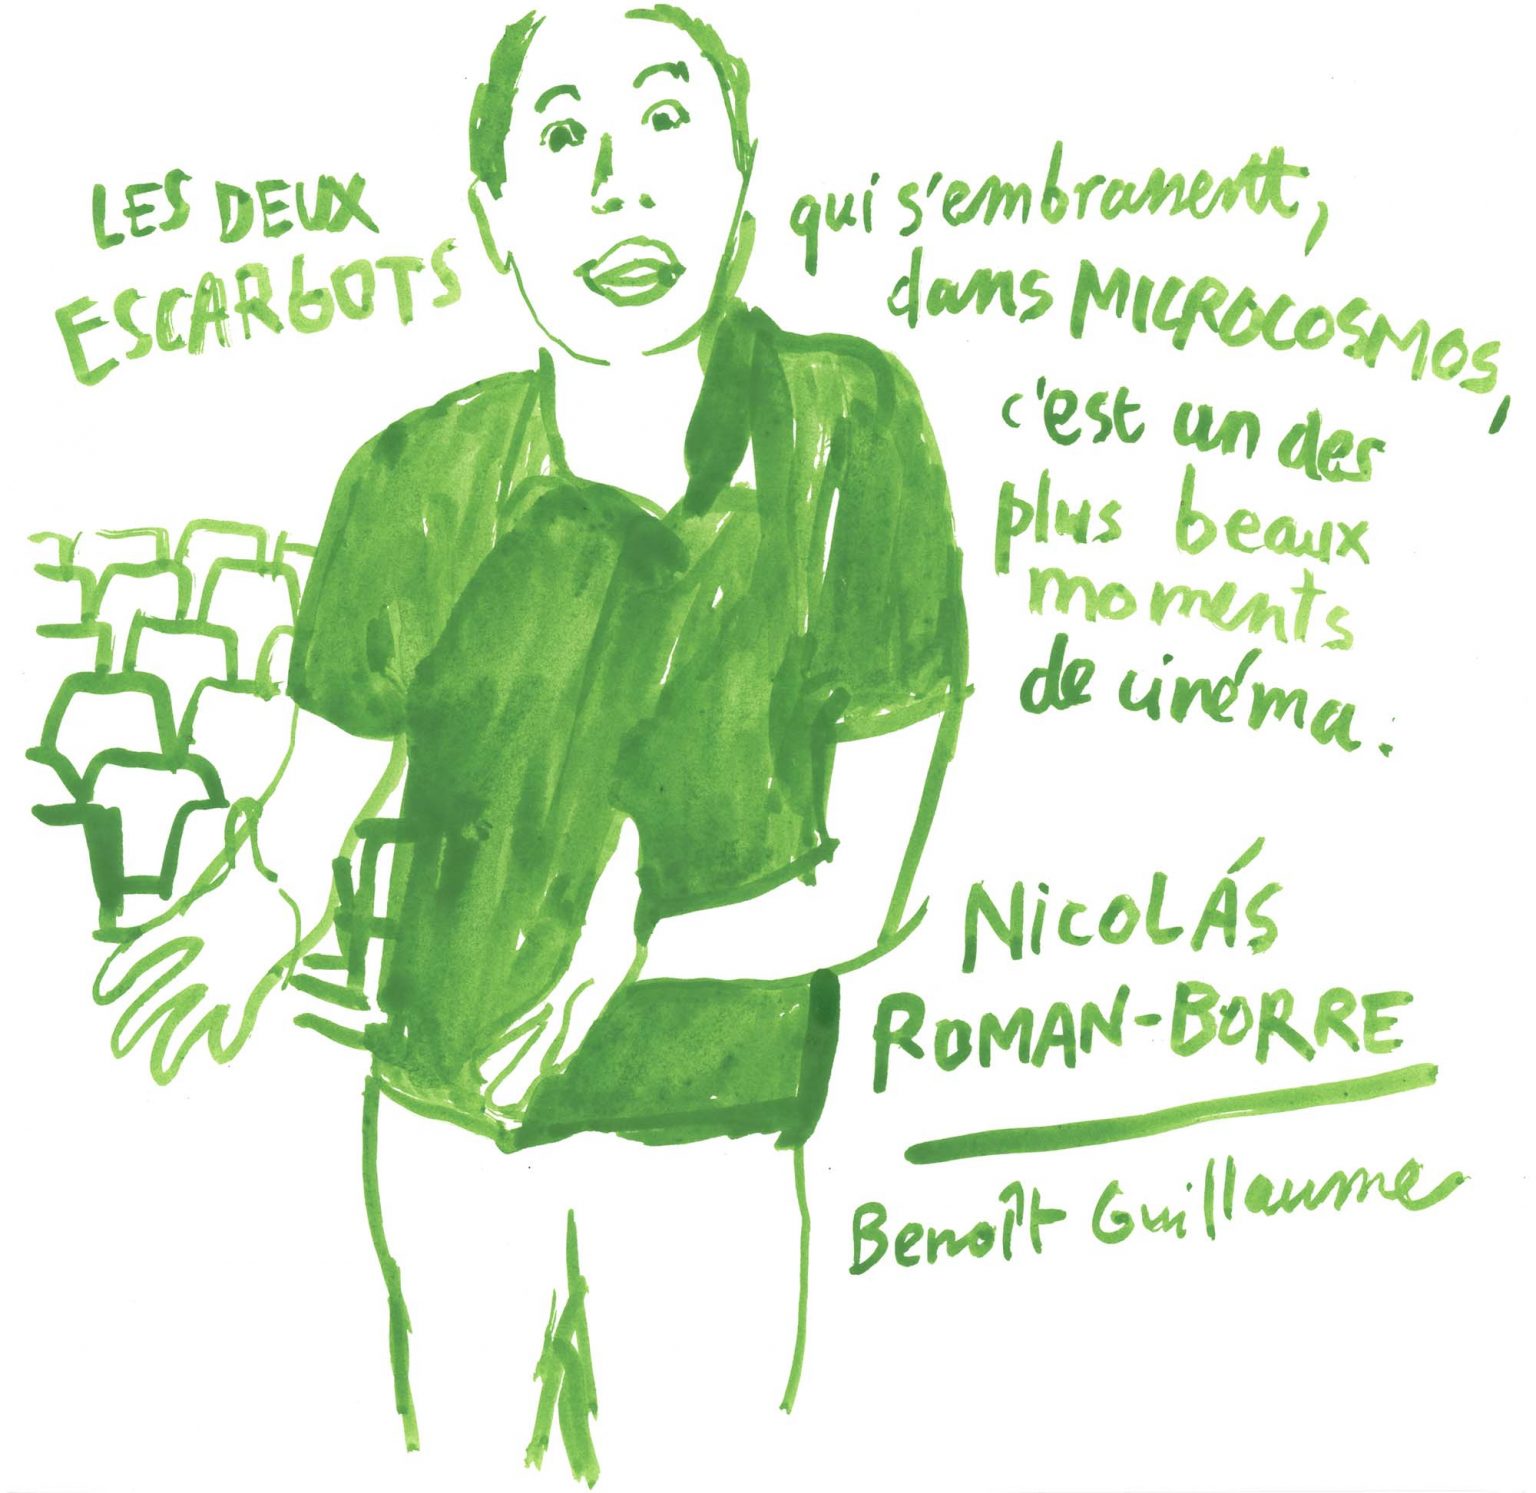 LES DEUX
ESCARGOTS
qui s'embrassent,
dans MICROCOSMOS,
c'est un des
plus beaux
moments
de cinéma.
NICOLÁS
ROMAN-BORRE
Benoît Guillaume